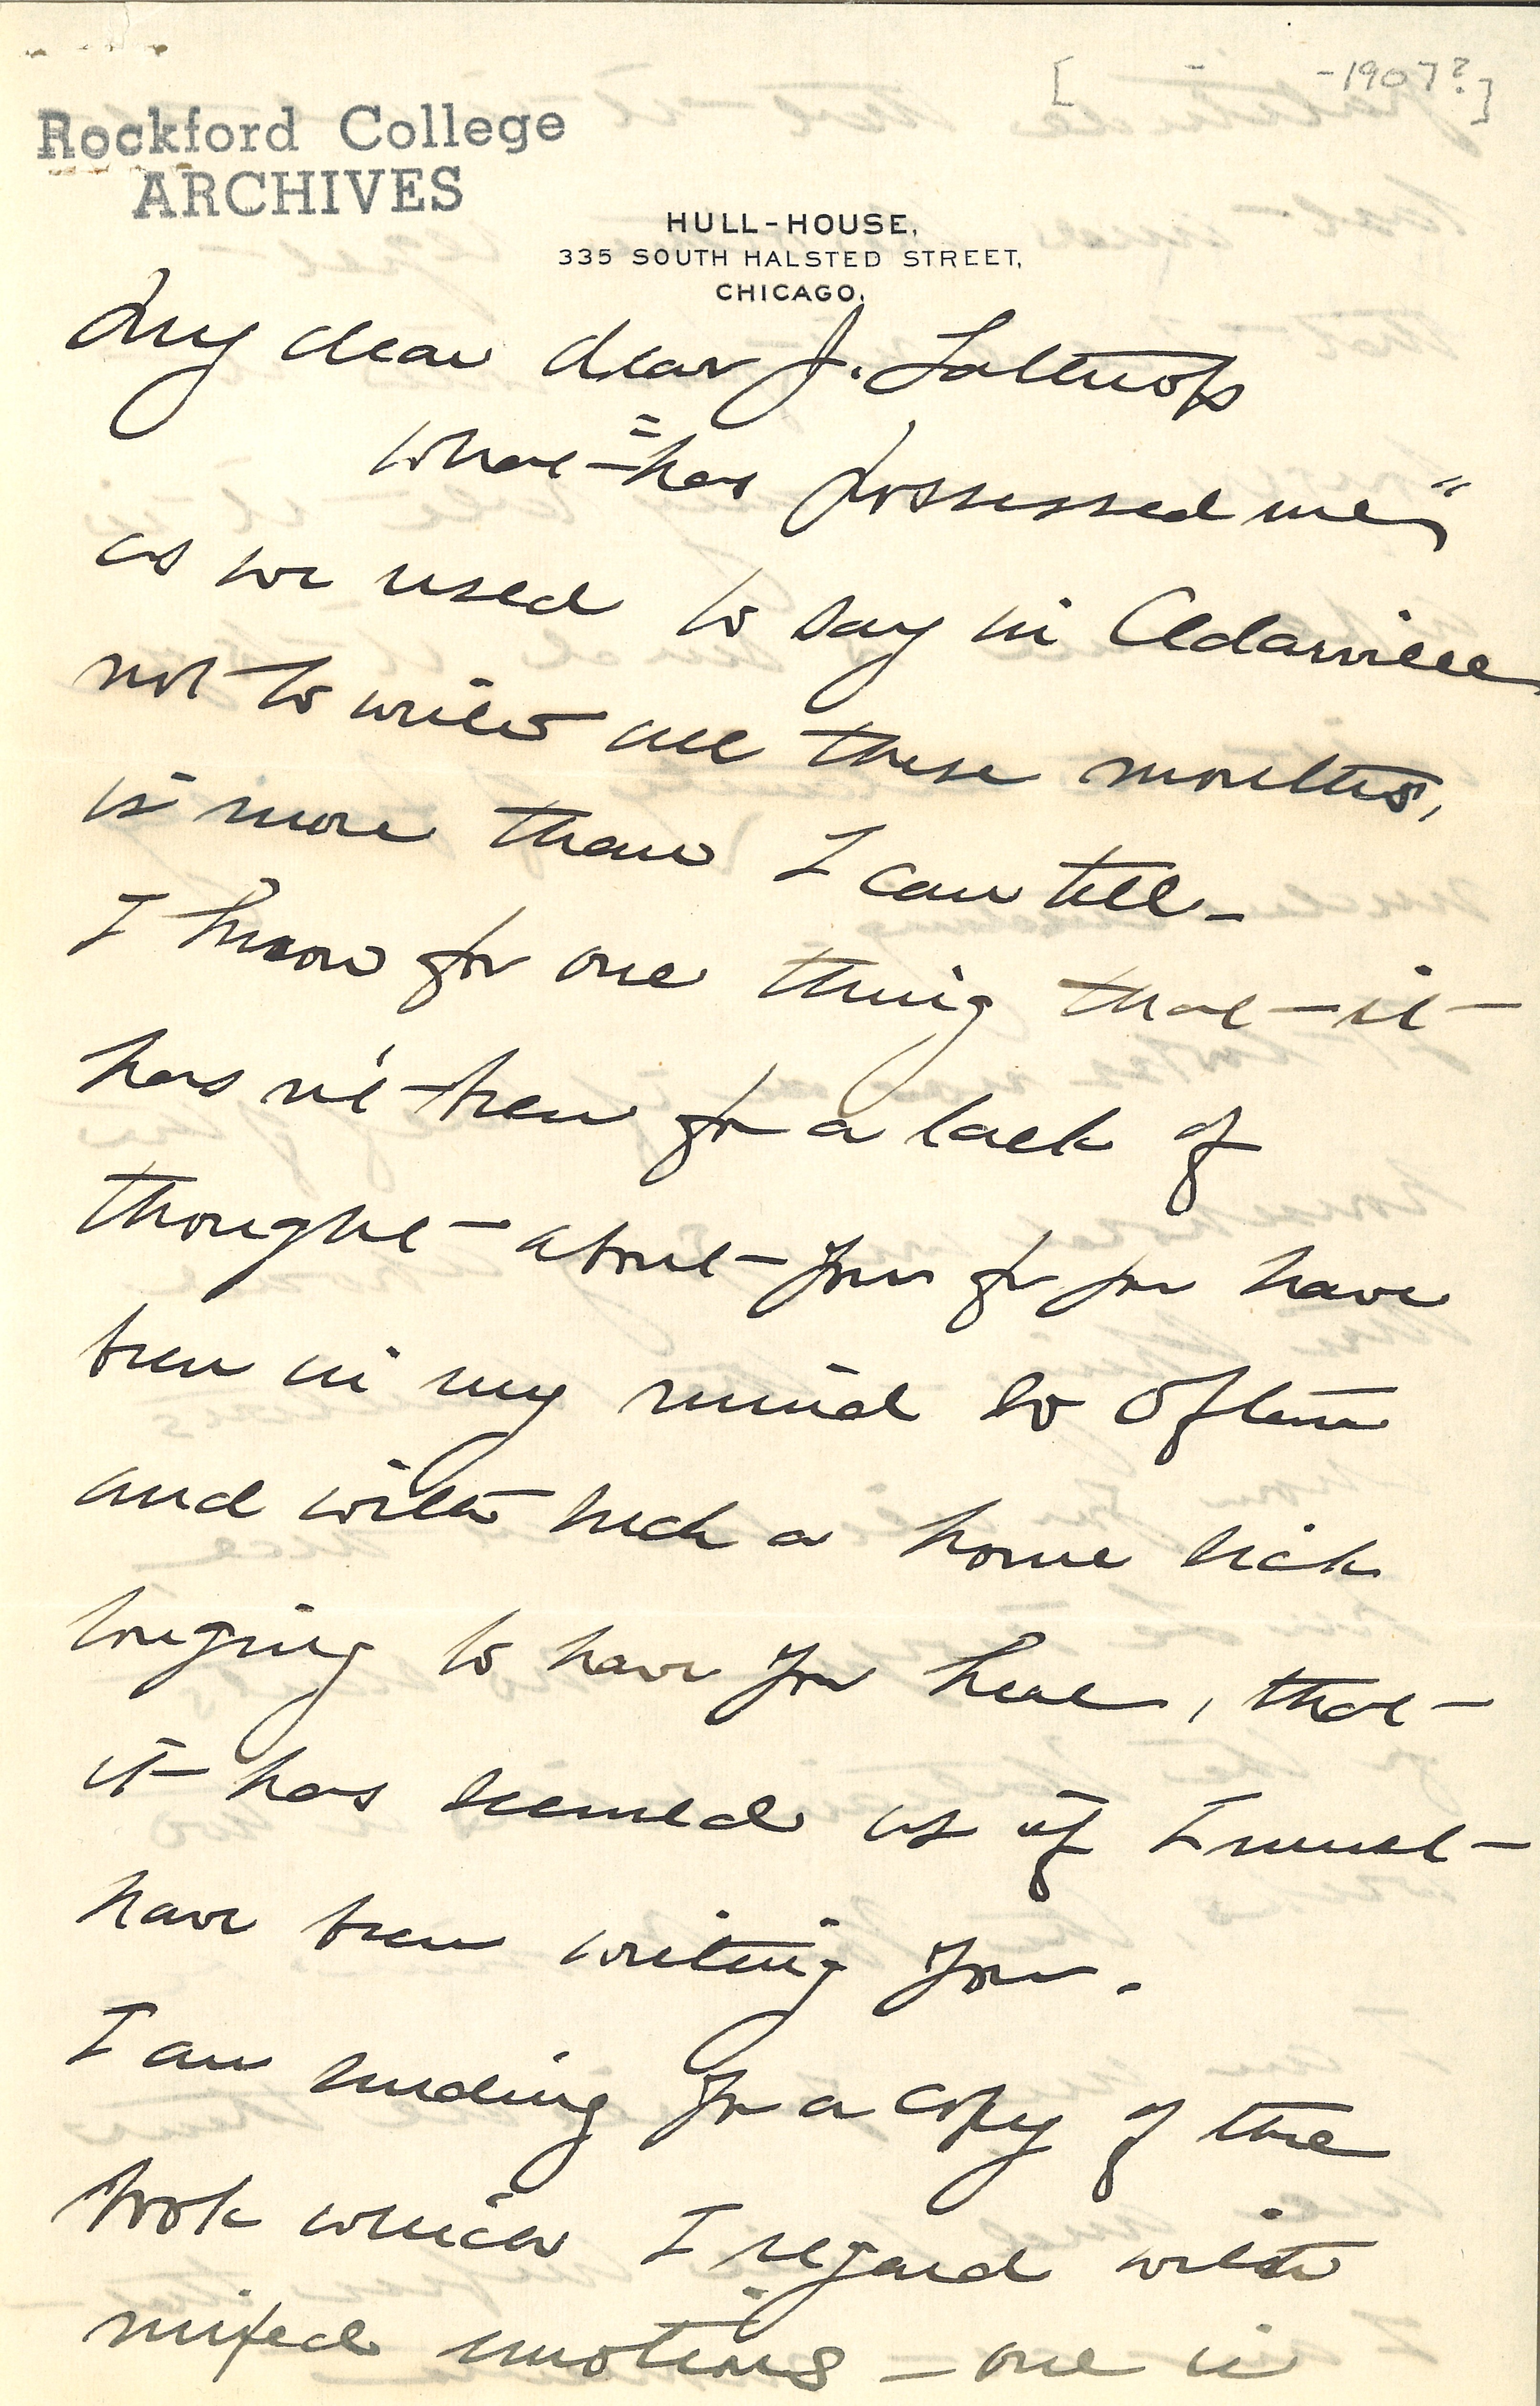 [ -1907?]
Rockford College
ARCHIVES
HULL-HOUSE,
335 SOUTH HALSTED STREET,
CHICAGO.
My dear dear J. Lathrop
What "has possessed me",
as we used to say in Cedarville
not to write all these months,
is more than I can tell –
I know for one thing that it
has n't been for a lack of
thought about you for you have
been in my mind so often
and with such a home sick
longing to have you here, that
it has seemed as if I must
have been writing you.
I am sending you a copy of the
book which I regard with
mixed emotions – one is